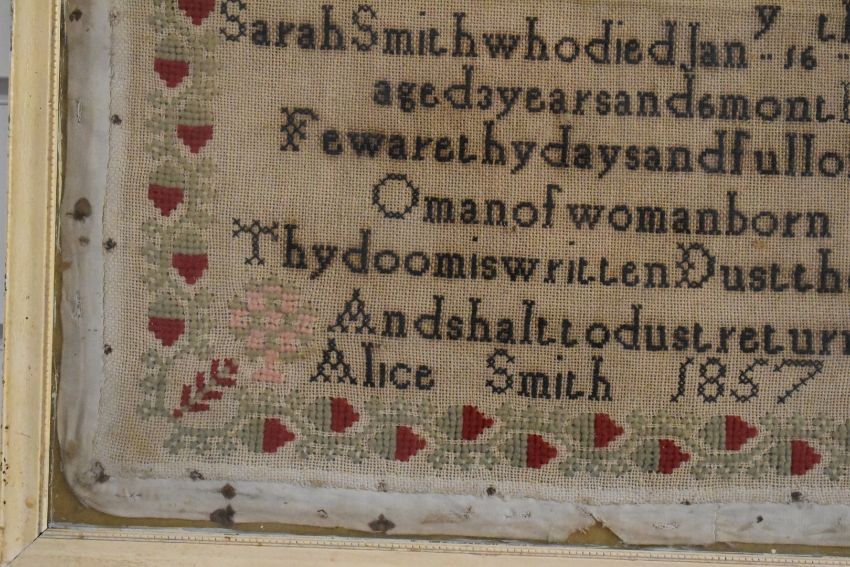 Sarah Smith who died Jan y 16 th
aged 3 years and 6 month
Few are thy days and full o
O man of woman born
Thy doom is written Dust th
And shalt to dust return
Alice Smith 1857